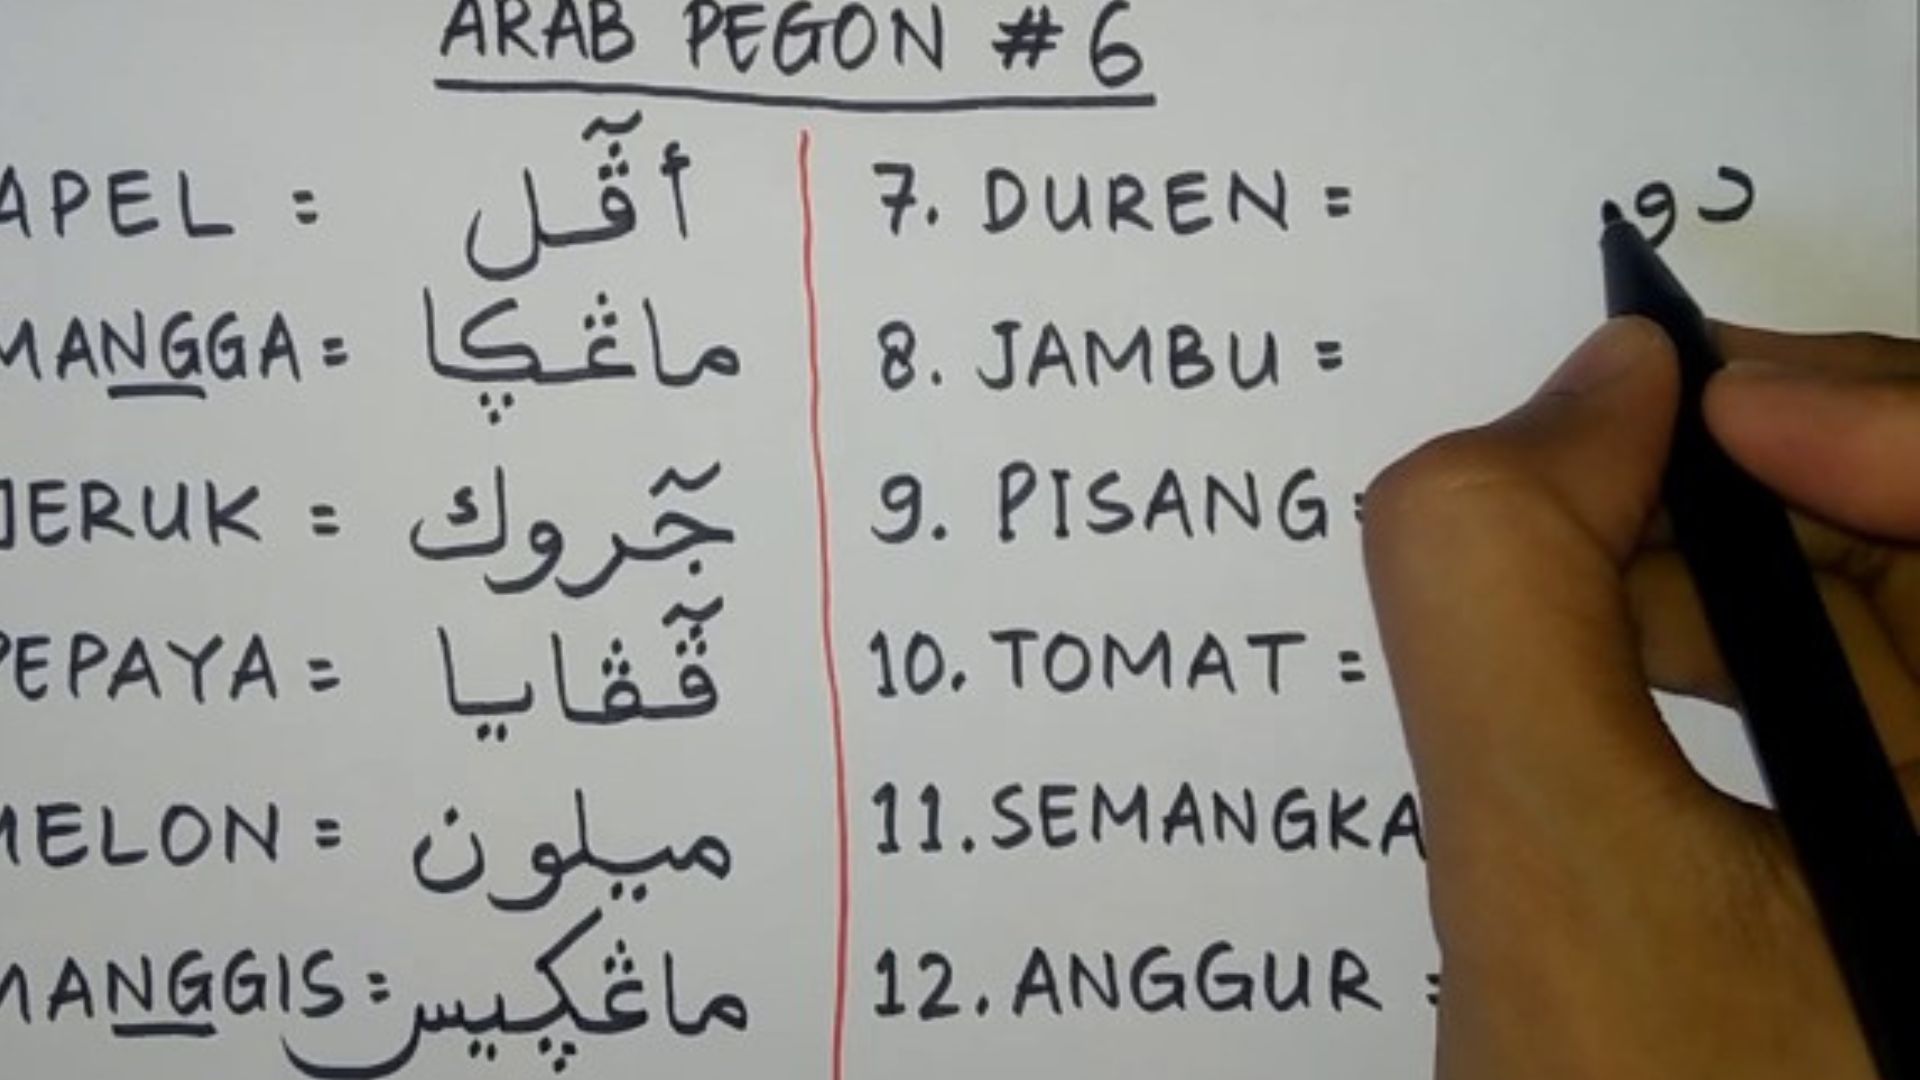 ARAB PEGON #6
APEL : أڤٓل
MANGGA = ماڠڮا
JERUK = جٓروك
PEPAYA = ڤٓڤايا
MELON = ميلون
MANGGIS = ماڠڮيس
7. DUREN = دو
8. JAMBU =
9. PISANG :
10. TOMAT =
11. SEMANGKA
12. ANGGUR :